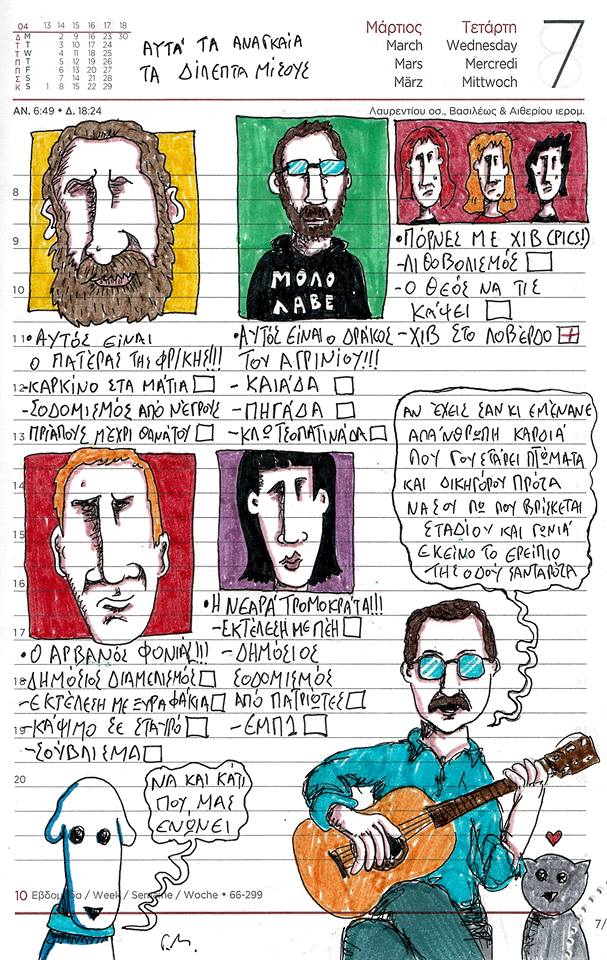 04 13 14 15 16 17 18
Δ M 2 9 16 23 30
Τ T 3 10 17 24
Τ W 4 11 18 25
Π T 5 12 19 26
Π F 6 13 20 27
Σ S 7 14 21 28
Κ S 1 8 15 22 29
ΑΥΤΑ' ΤΑ ΑΝΑΓΚΑΙΑ
ΤΑ ΔΙΛΕΠΤΑ ΜΙΣΟΥΣ
Μάρτιος Τετάρτη
March Wednesday
Mars Mercredi
März Mittwoch
7
8
ΑΝ. 6:49 • Δ. 18:24
Λαυρεντίου οσ., Βασιλέως & Αιθερίου ιερομ.
8
9
10
ΜΟΛΟ
ΛΑΒΕ
•ΠΟΡΝΕΣ ΜΕ ΧΙΒ (PICS!)
-ΛΙΘΟΒΟΛΙΣΜΟΣ
-Ο ΘΕΟΣ ΝΑ ΤΙΣ
ΚΑΨΕΙ
-ΧΙΒ ΣΤΟ ΛΟΒΕΡΔΟ
11 •ΑΥΤΟΣ ΕΙΝΑΙ
Ο ΠΑΤΕΡΑΣ ΤΗΣ ΦΡΙΚΗΣ!!!
12 -ΚΑΡΚΙΝΟ ΣΤΑ ΜΑΤΙΑ
-ΣΟΔΟΜΙΣΜΟΣ ΑΠΟ ΝΕΓΡΟΥΣ
13 ΠΡΙΑΠΟΥΣ ΜΕΧΡΙ ΘΑΝΑΤΟΥ
•ΑΥΤΟΣ ΕΙΝΑΙ Ο ΔΡΑΚΟΣ
ΤΟΥ ΑΓΡΙΝΙΟΥ!!!
-ΚΑΙΑΔΑ
-ΠΗΓΑΔΑ
-ΚΛΩΤΣΟΠΑΤΙΝΑΔΑ
ΑΝ ΈΧΕΙΣ ΣΑΝ ΚΙ ΕΜΕΝΑΝΕ
ΑΠΑ'ΝΘΡΩΠΗ ΚΑΡΔΙΑ'
ΠΟΥ ΓΟΥΣΤΑΡΕΙ ΠΤΩΜΑΤΑ
ΚΑΙ ΔΙΚΗΓΟΡΟΥ ΠΡΟΤΑ
ΝΑ ΣΟΥ ΠΩ ΠΟΥ ΒΡΙΣΚΕΤΑΙ
ΣΤΑΔΙΟΥ ΚΑΙ ΓΩΝΙΑ'
ΕΚΕΙΝΟ ΤΟ ΕΡΕΙΠΙΟ
ΤΗΣ ΟΔΟΥ ΣΑΝΤΑΡΟΖΑ
14
15
16
•Η ΝΕΑΡΑ' ΤΡΟΜΟΚΡΑΤΑ!!!
-ΕΚΤΕΛΕΣΗ ΜΕ ΠΕΗ
-ΔΗΜΟΣΙΟΣ
ΣΟΔΟΜΙΣΜΟΣ
ΑΠΟ ΠΑΤΡΙΩΤΕΣ
-ΕΜΠ1
17
•Ο ΑΡΒΑΝΟΣ ΦΟΝΙΑΣ!!!
18 -ΔΗΜΟΣΙΟΣ ΔΙΑΜΕΛΙΣΜΟΣ
-ΕΚΤΕΛΕΣΗ ΜΕ ΞΥΡΑΦΑΚΙΑ
19 -ΚΑ'ΨΙΜΟ ΣΕ ΣΤΑΥΡΟ'
-ΣΟΥΒΛΙΣΜΑ
20
ΝΑ ΚΑΙ ΚΑΤΙ
ΠΟΥ ΜΑΣ
ΕΝΩΝΕΙ
10 Εβδομάδα / Week / Semaine / Woche • 66-299
7/